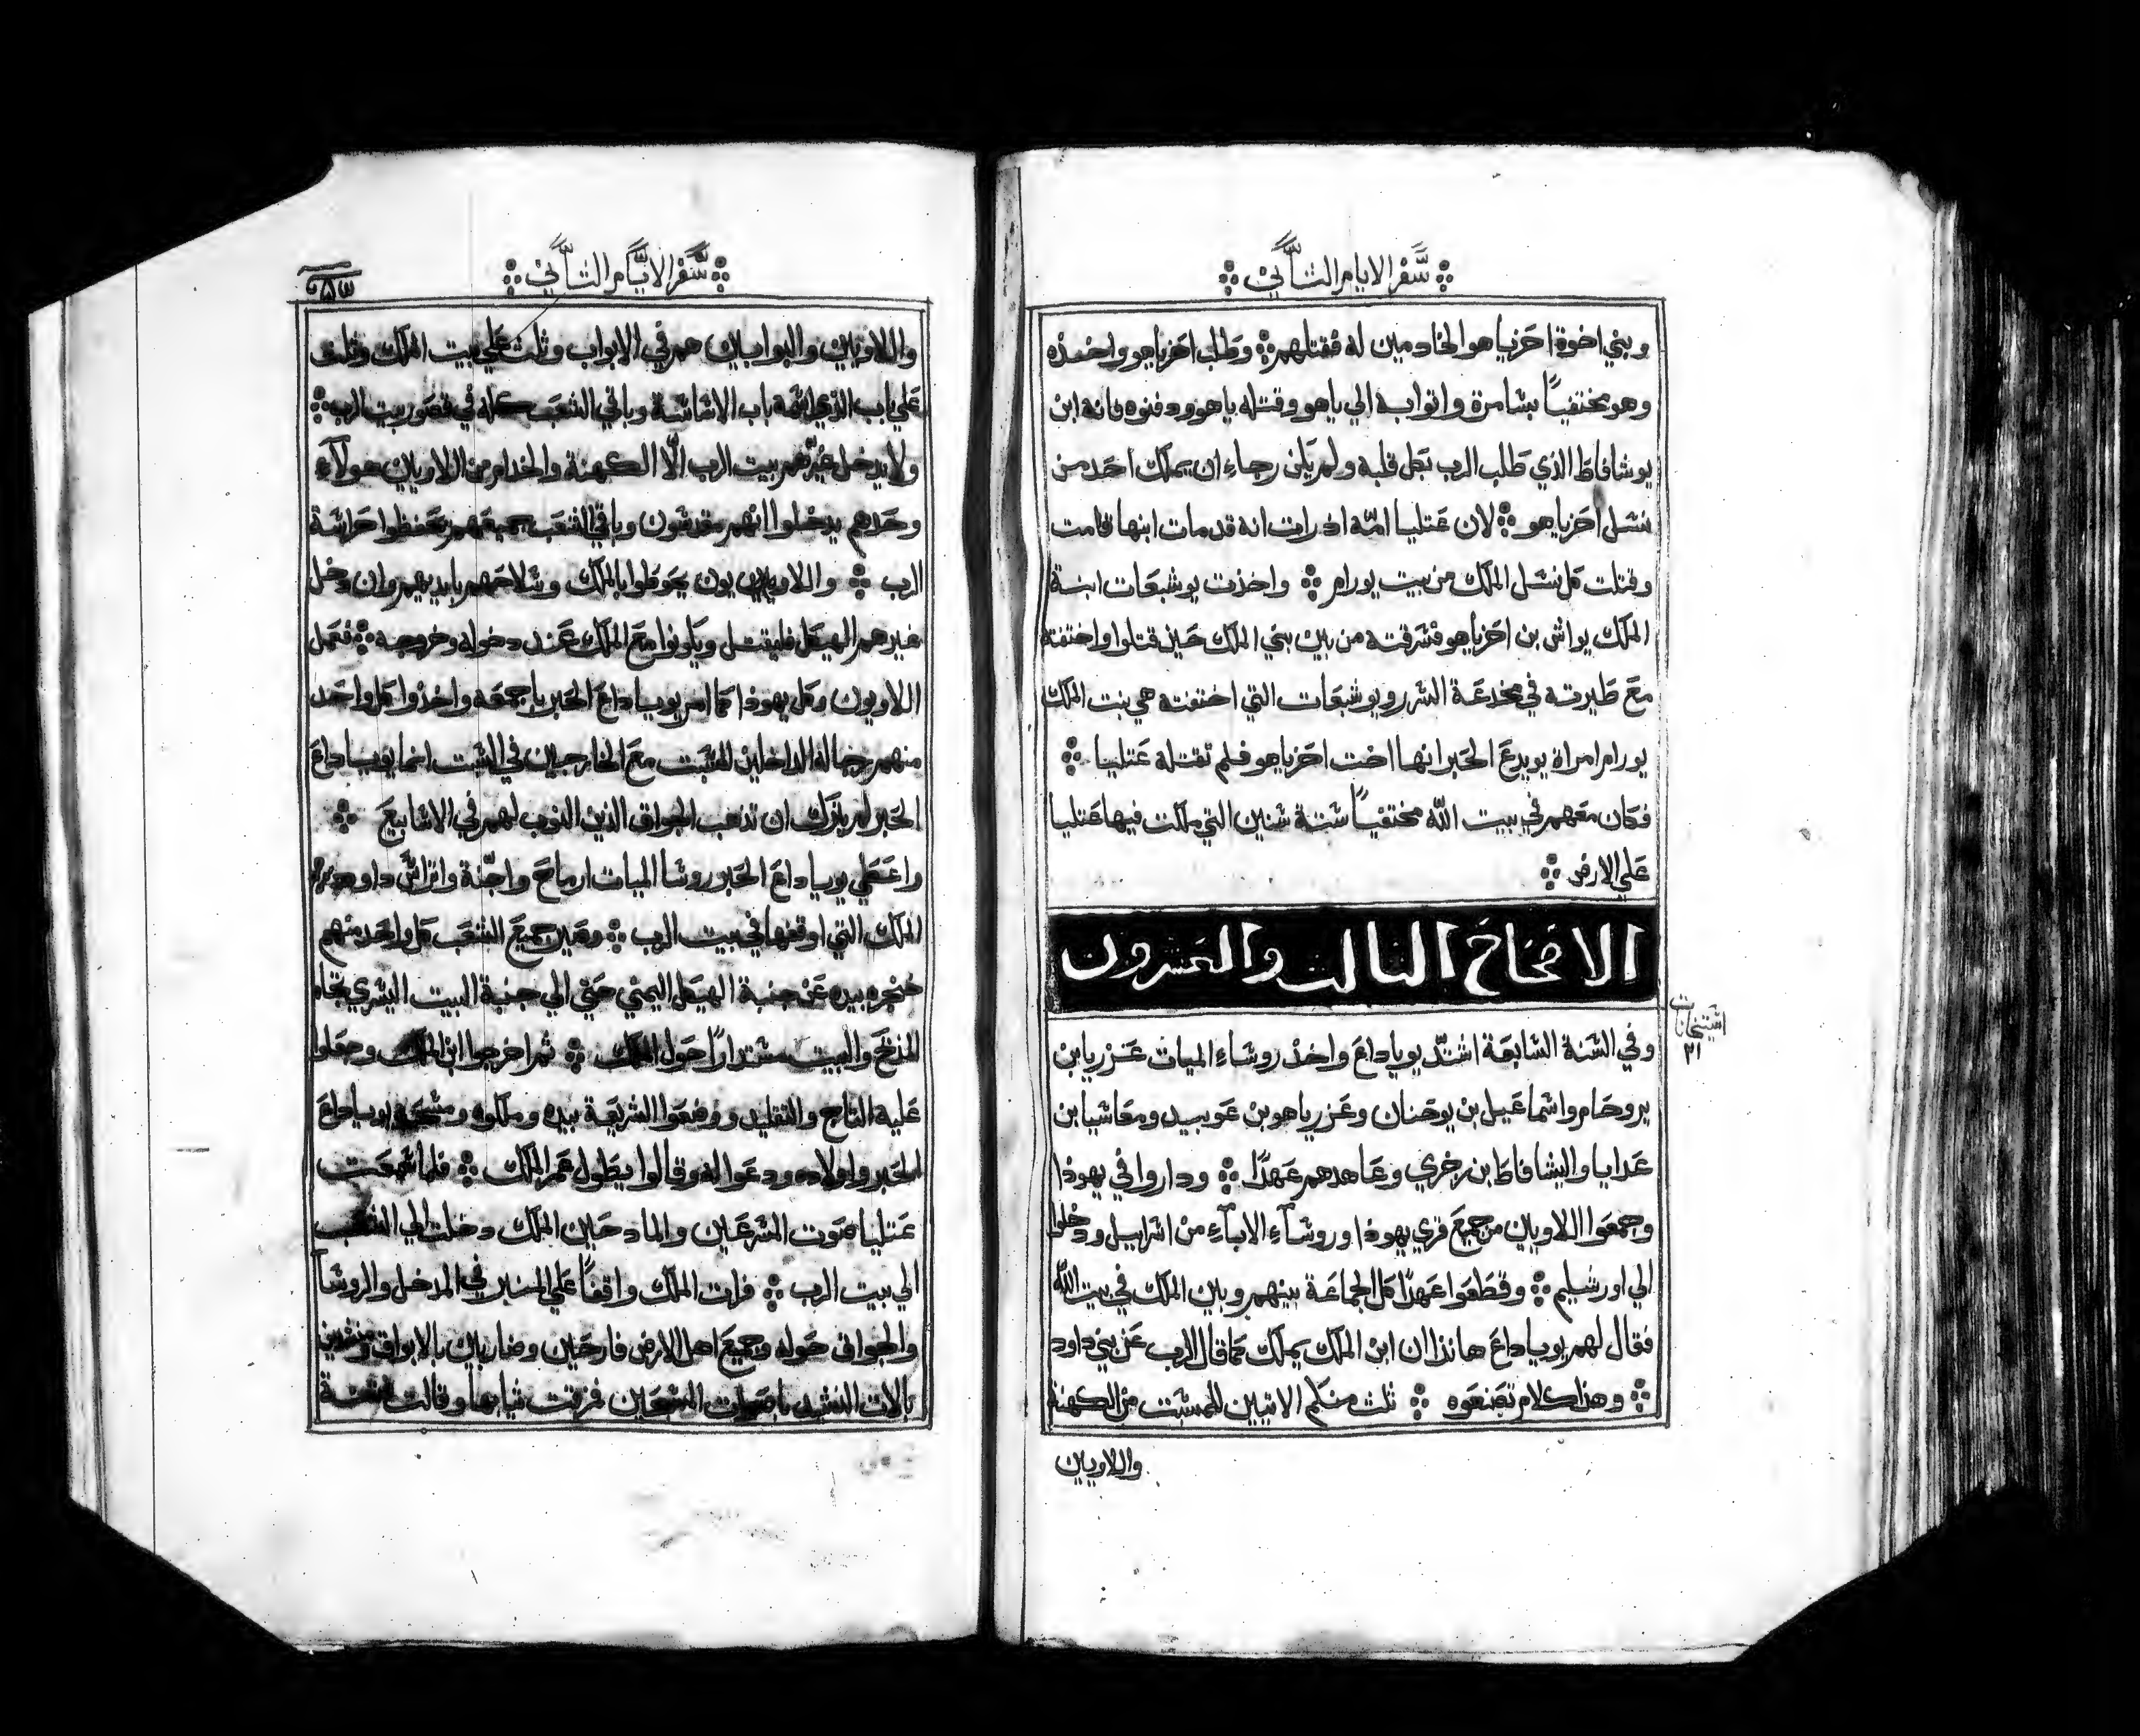 سفر الايام الثاني
وبني اخوة احزياهو الخادمين له فقتلهم وطلب احزياهو واخذه
وهو مختفياً بشامرة واتوا به الي ياهو وقتله ياهو ودفنوه فانه ابن
يوشافاط الذي طلب الرب بكل قلبه ولم يكن رجاء ان يملك احد من
نسل احزياهو لان عتليا امه اذ رات انه قد مات ابنها قامت
وقتلت كل نسل الملك من بيت يورام واخذت يوشبعات ابنة
الملك يواش بن احزياهو فسرقته من بين بني الملك حين قتلوا واختفته
مع طيرته في مخدعة السرر ويوشبعات التي اختفته هي بنت الملك
يورام امراة يويدع الحبر انها اخت احزياهو فلم تقتله عتليا
فكان معهم في بيت الله مختفياً ستة سنين التي ملكت فيها عتليا
علي الارض
الافتاح التالت والعشرون
استيخانات
٢١
وفي السنة السابعة اشتد يوياداع واخذ روساء الميات عزريا بن
يروحام واسماعيل بن يوحنان وعزرياهو بن عوبيد ومعاشيا بن
عدايا واليشافاط ابن زخري وعاهدهم عهدًا وداروا في يهوذا
وجمعوا اللاويين من جميع قري يهوذا وروساء الاباء من اسراييل ودخلوا
الي اورشليم وقطعوا عهدًا كل الجماعة بينهم وبين الملك في بيت الله
فقال لهم يوياداع هانذا ان ابن الملك يملك كما قال الرب عن بني داود
وهذا كلام تصنعوه ثلث منكم الاتيين للسبت من الكهنة
واللاويين
سفر الايام الثاني
واللاويين والبوابين هم في الابواب وثلث علي بيت الملك وثلث
علي باب الذي اسمه باب الاساسة وباقي الشعب كله في قصور بيت الرب
ولا يدخل غيرهم بيت الرب الا الكهنة والخدام من اللاويين هولاء
وحدهم يدخلوا انهم مقدسون وباقي الشعب جميعهم يحفظوا حراسة
الرب واللاويون يحوطوا بالملك وسلاحهم بايديهم وان دخل
غيرهم الهيكل فليقتل ويكونوا مع الملك عند دخوله وخروجه فعمل
اللاويون وكل يهوذا كما امر يوياداع الحبر باجمعه واخذوا كل واحد
منهم رجاله الداخلين للسبت مع الخارجين في السبت انما يوياداع
الحبر لم يترك ان تذهب الجواق الذين النوب لهم في الاسابيع
واعطي يوياداع الحبر روسا الميات ارماح واجنة واتراس داود
الملك التي اوقفها في بيت الرب وعين جميع الشعب كل واحد منهم
خنجره بيده عن جنبة الهيكل اليمني حتي الي جنبة البيت اليسري تجاه
المذبح والبيت مستدارًا حول الملك ثم اخرجوا ابن الملك وجعلوا
عليه التاج والتقليد ووضعوا الشريعة بيده وملكوه ومسحه يوياداع
الحبر واولاده ودعوا له وقالوا يطول عمر الملك فلما سمعت
عتليا صوت المسرعين والمادحين الملك دخلت الي الشعب
الي بيت الرب فرات الملك واقفاً علي المنبر في المدخل والروسا
والجواق حوله وجميع اهل الارض فارحين وضاربين بالابواق
بالات النشيد باصوات المسبحين فمزقت ثيابها وقالت